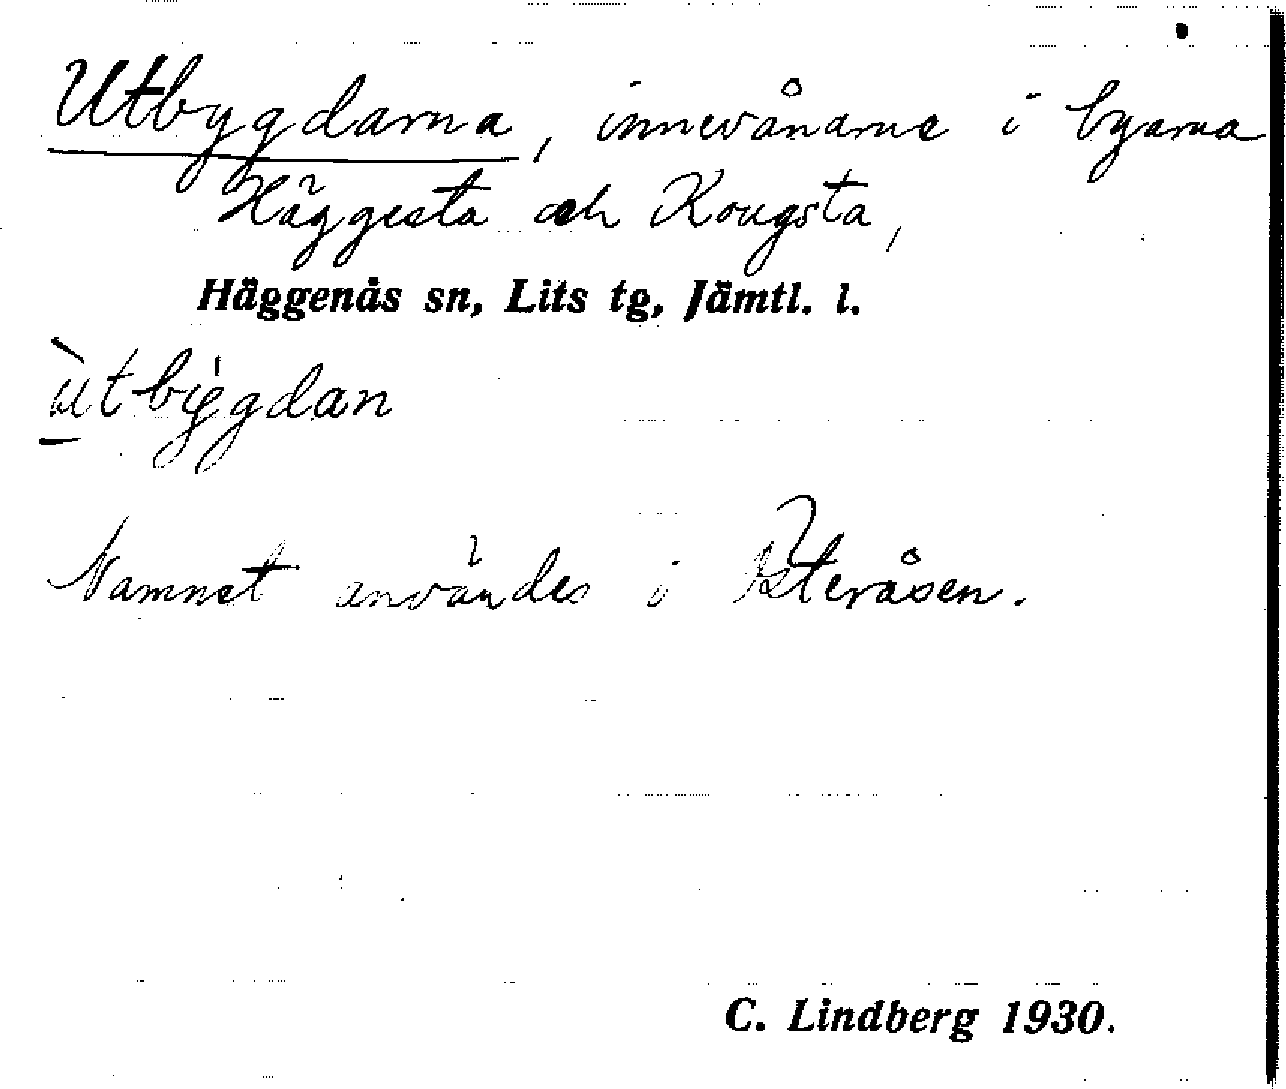 Utbygdarna, innevånarne i byarna
Häggesta och Kougsta,
Häggenås sn, Lits tg, Jämtl. l.
ùtbýgdan
Namnet användes i Österåsen.
C. Lindberg 1930.